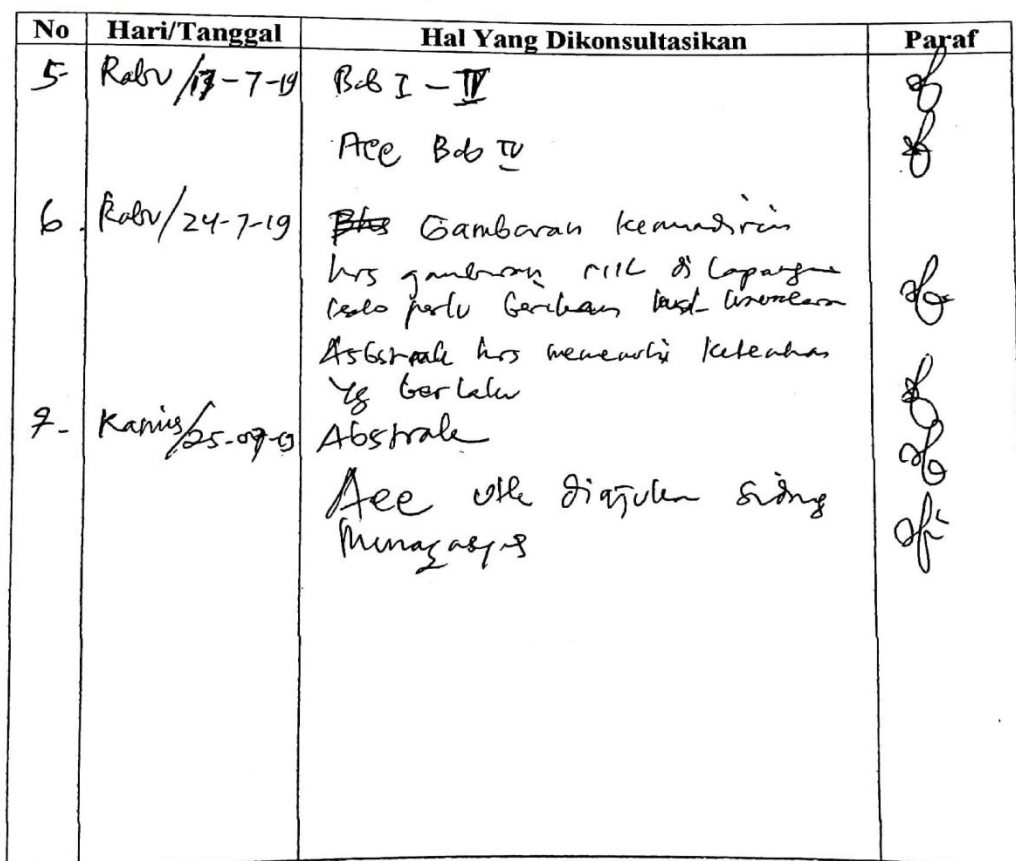 No Hari/Tanggal Hal Yang Dikonsultasikan Paraf
5- Rabu /17-7-19 Bab I - IV
Acc Bab IV
6. Rabu/24-7-19 Gambaran kemandirian
hrs gambaran riil di lapangan
perlu berikan
Abstrak hrs memenuhi ketentuan
yg berlaku
7- Kamis/25-07-19 Abstrak
Acc utk diajukan sidang
Munaqasyas